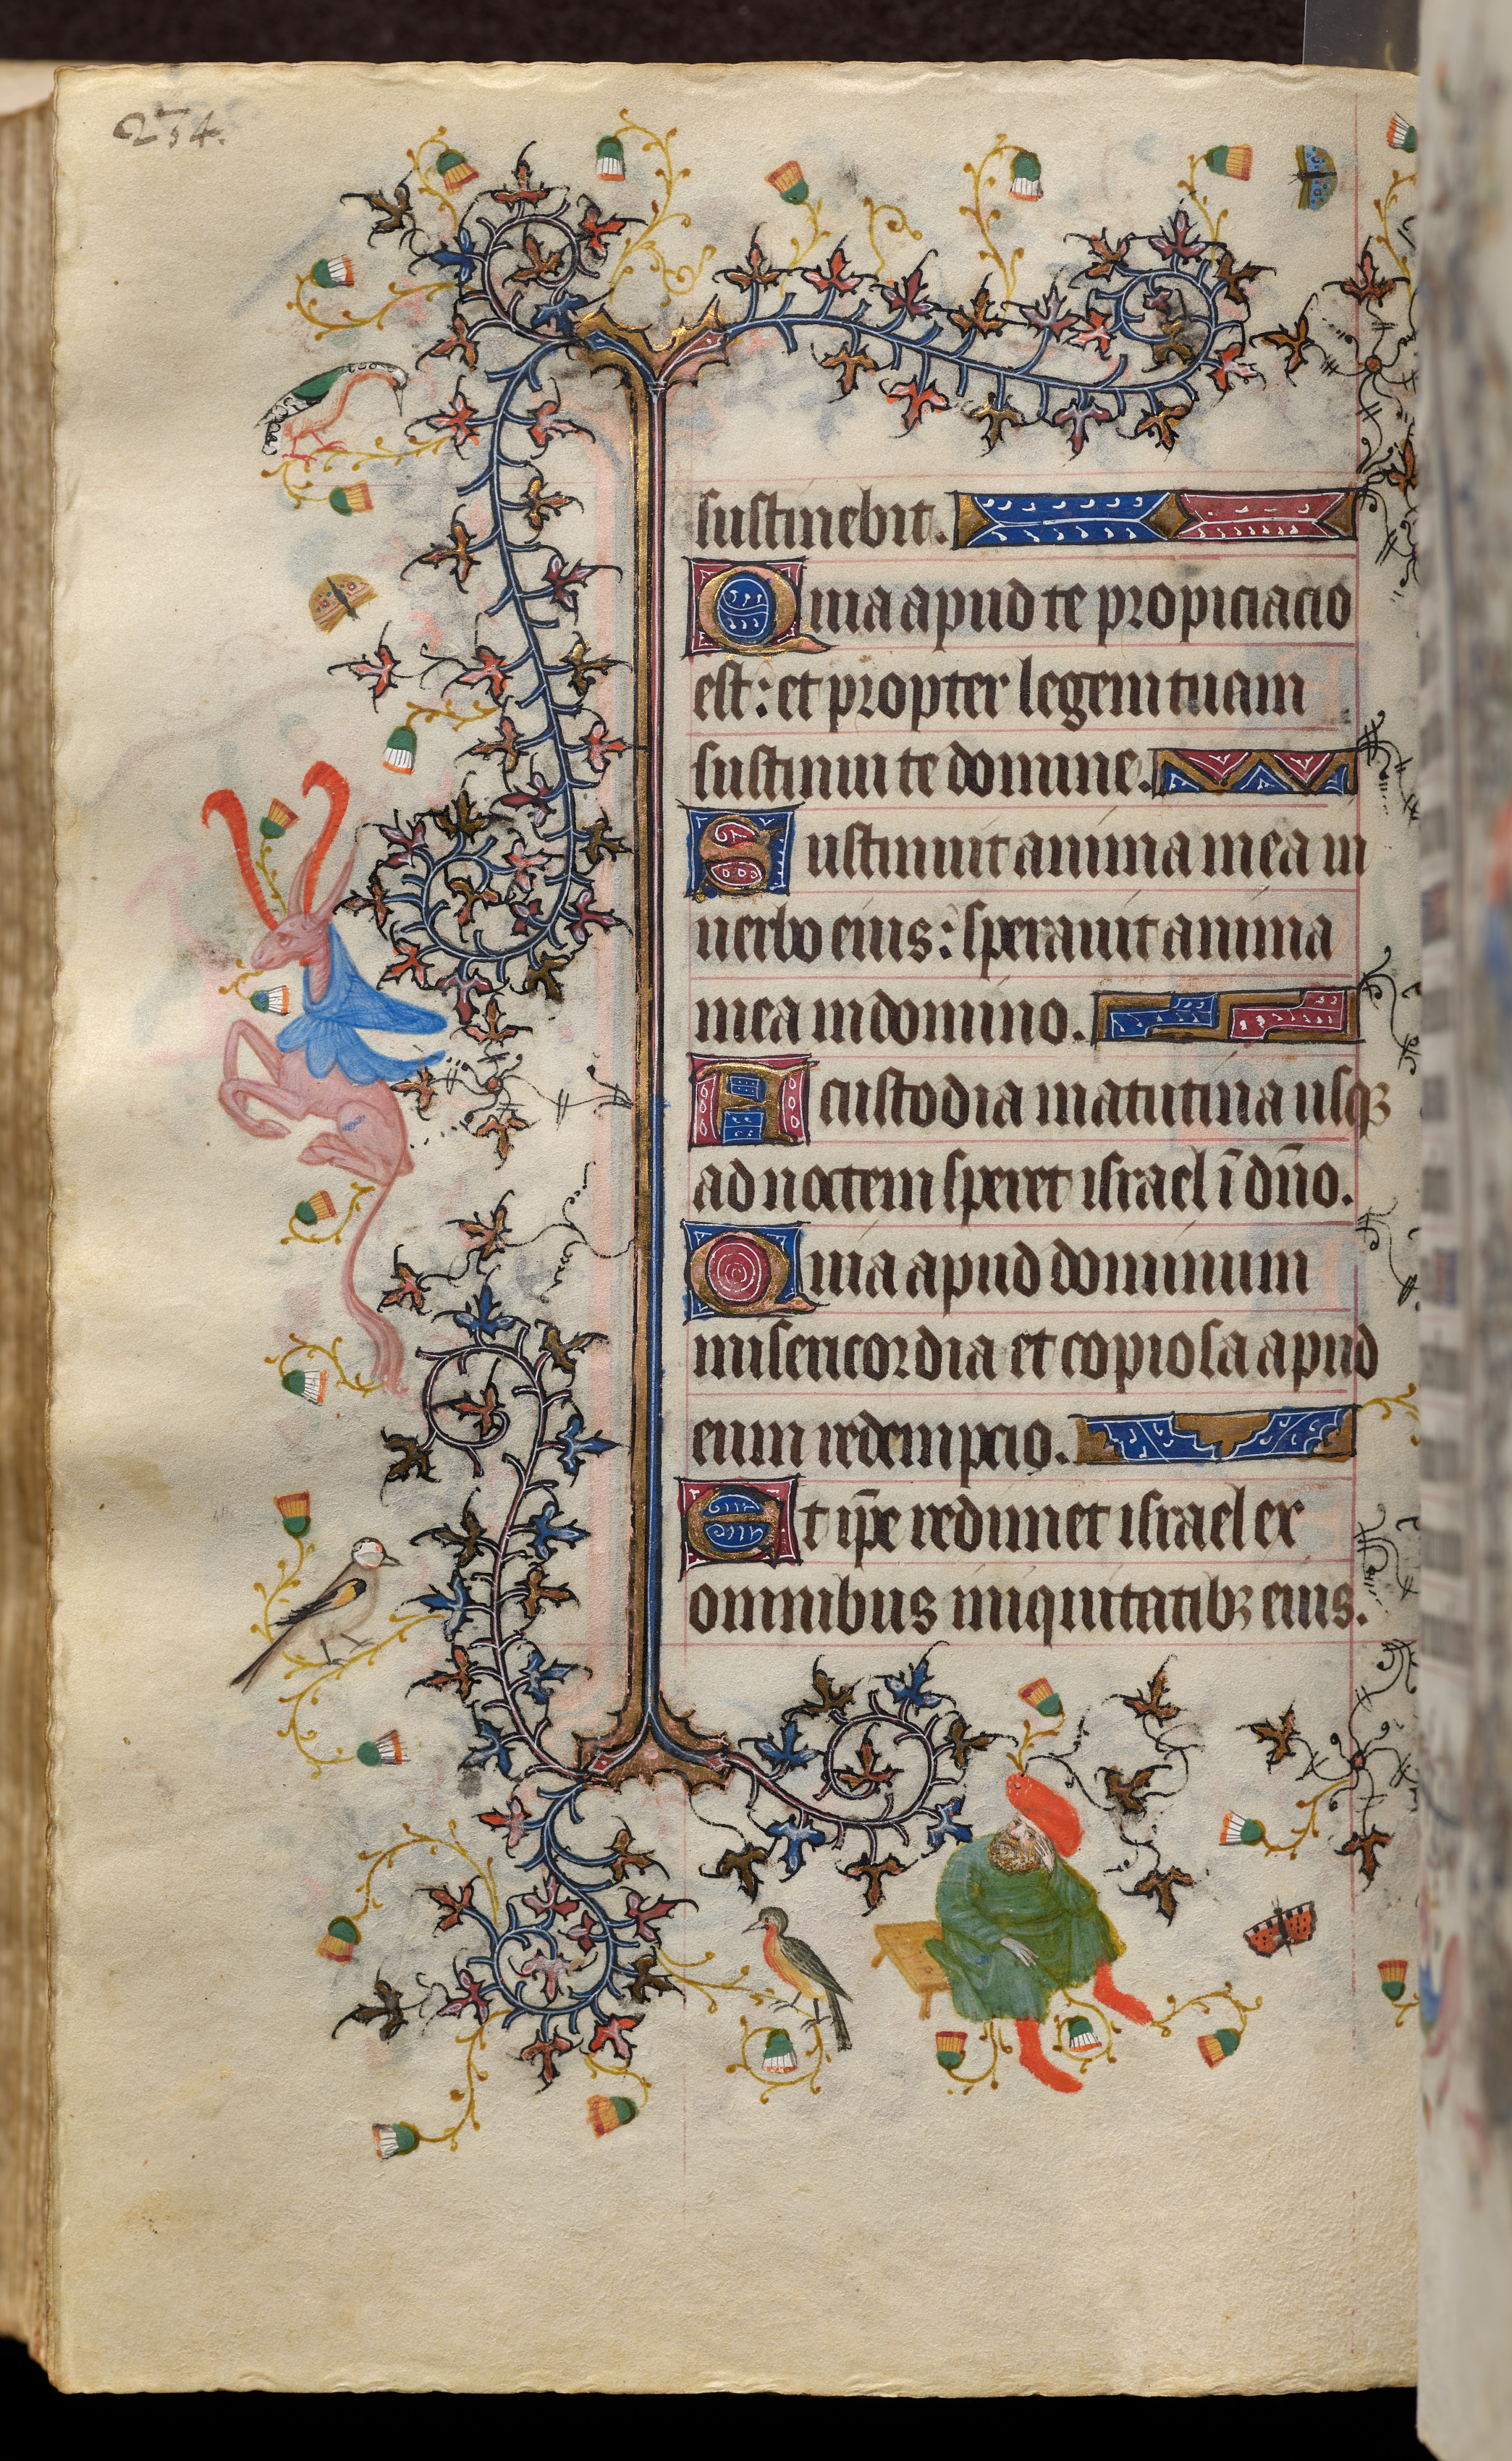 234.
sustinebit.
Quia apud te propiciacio
est: et propter legem tuam
sustinui te domine.
Sustinuit anima mea in
uerbo eius: sperauit anima
mea in domino.
A custodia matutina usqꝫ
ad noctem speret israel ī dn̄o.
Quia apud dominum
misericordia et copiosa apud
eum redempcio.
Et ip̄e redimet israel ex
omnibus iniquitatibꝫ eius.